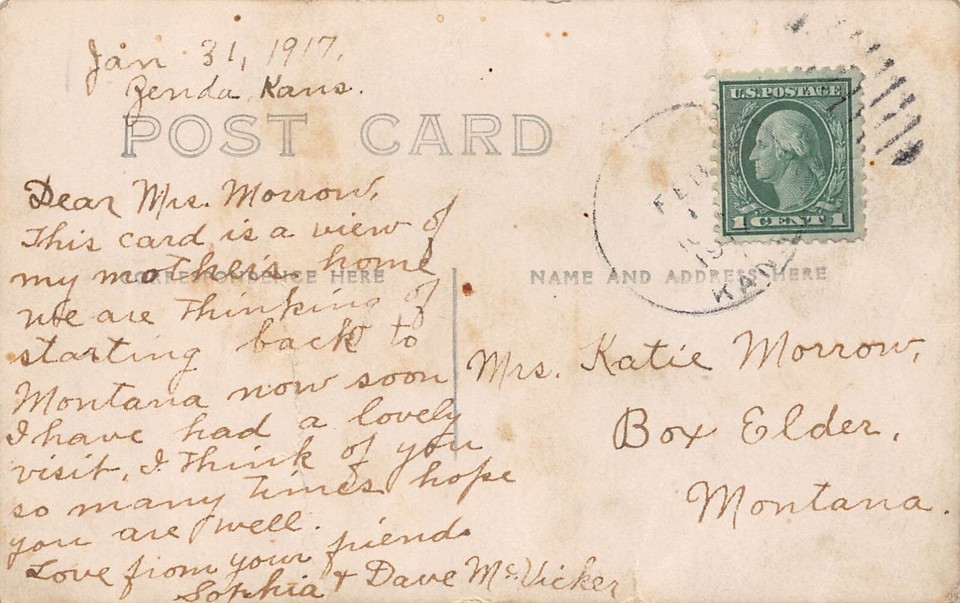 Jan 31, 1917,
Zenda, Kans.
POST CARD
U.S. POSTAGE
1 CENT 1
FEB
KANS
Dear Mrs. Morrow,
This card is a view of
my mother's home
CORRESPONDENCE HERE
NAME AND ADDRESS HERE
we are thinking of
starting back to
Montana now soon
I have had a lovely
visit, I think of you
so many times hope
you are well.
Love from your friends
Sophia & Dave McVicker
Mrs. Katie Morrow,
Box Elder,
Montana.